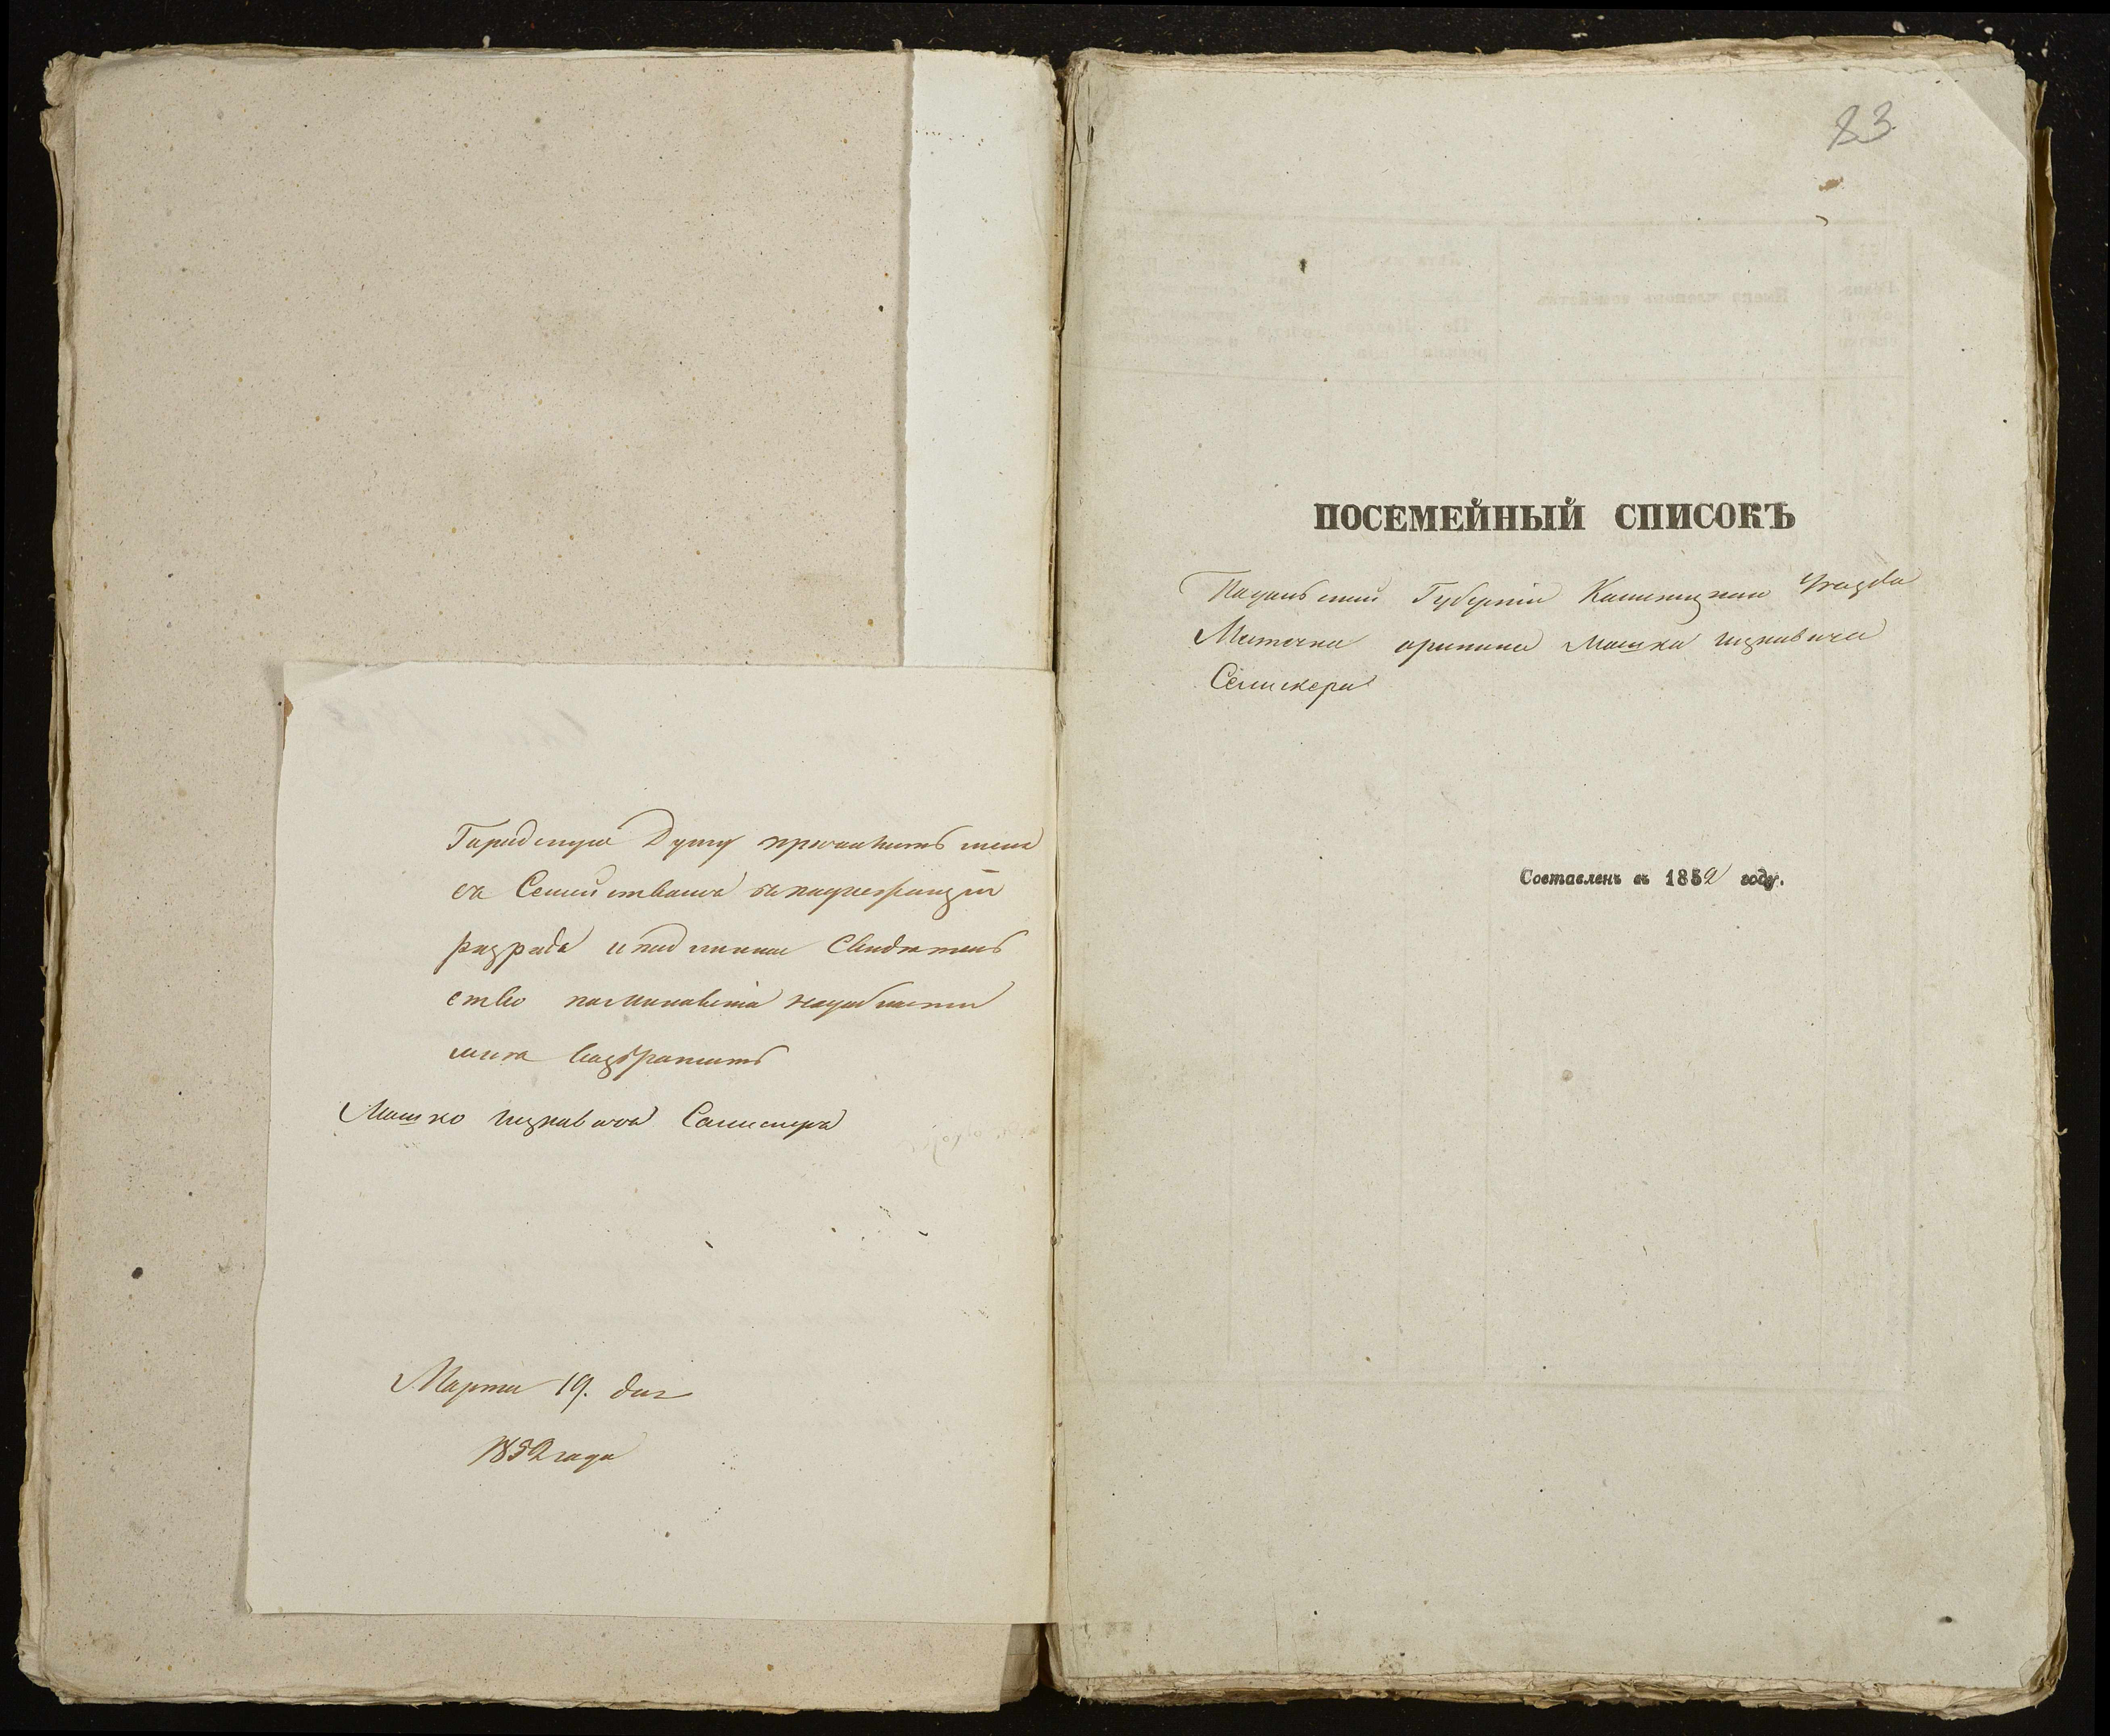 Гарадскую Думу причислить мена
са Семействама внадлежащи
разрада и под линное Свидетель
ство па минавении надобности
мине вазвратить
Машко ицкавича Самискера
Марта 19. дня
1852 года
83
ПОСЕМЕЙНЫЙ СПИСОКЪ
Падольский Губернии Каменицкаи Уезда
Местечка Машка ицкавича
Семискера
Составленъ въ 1852 году.